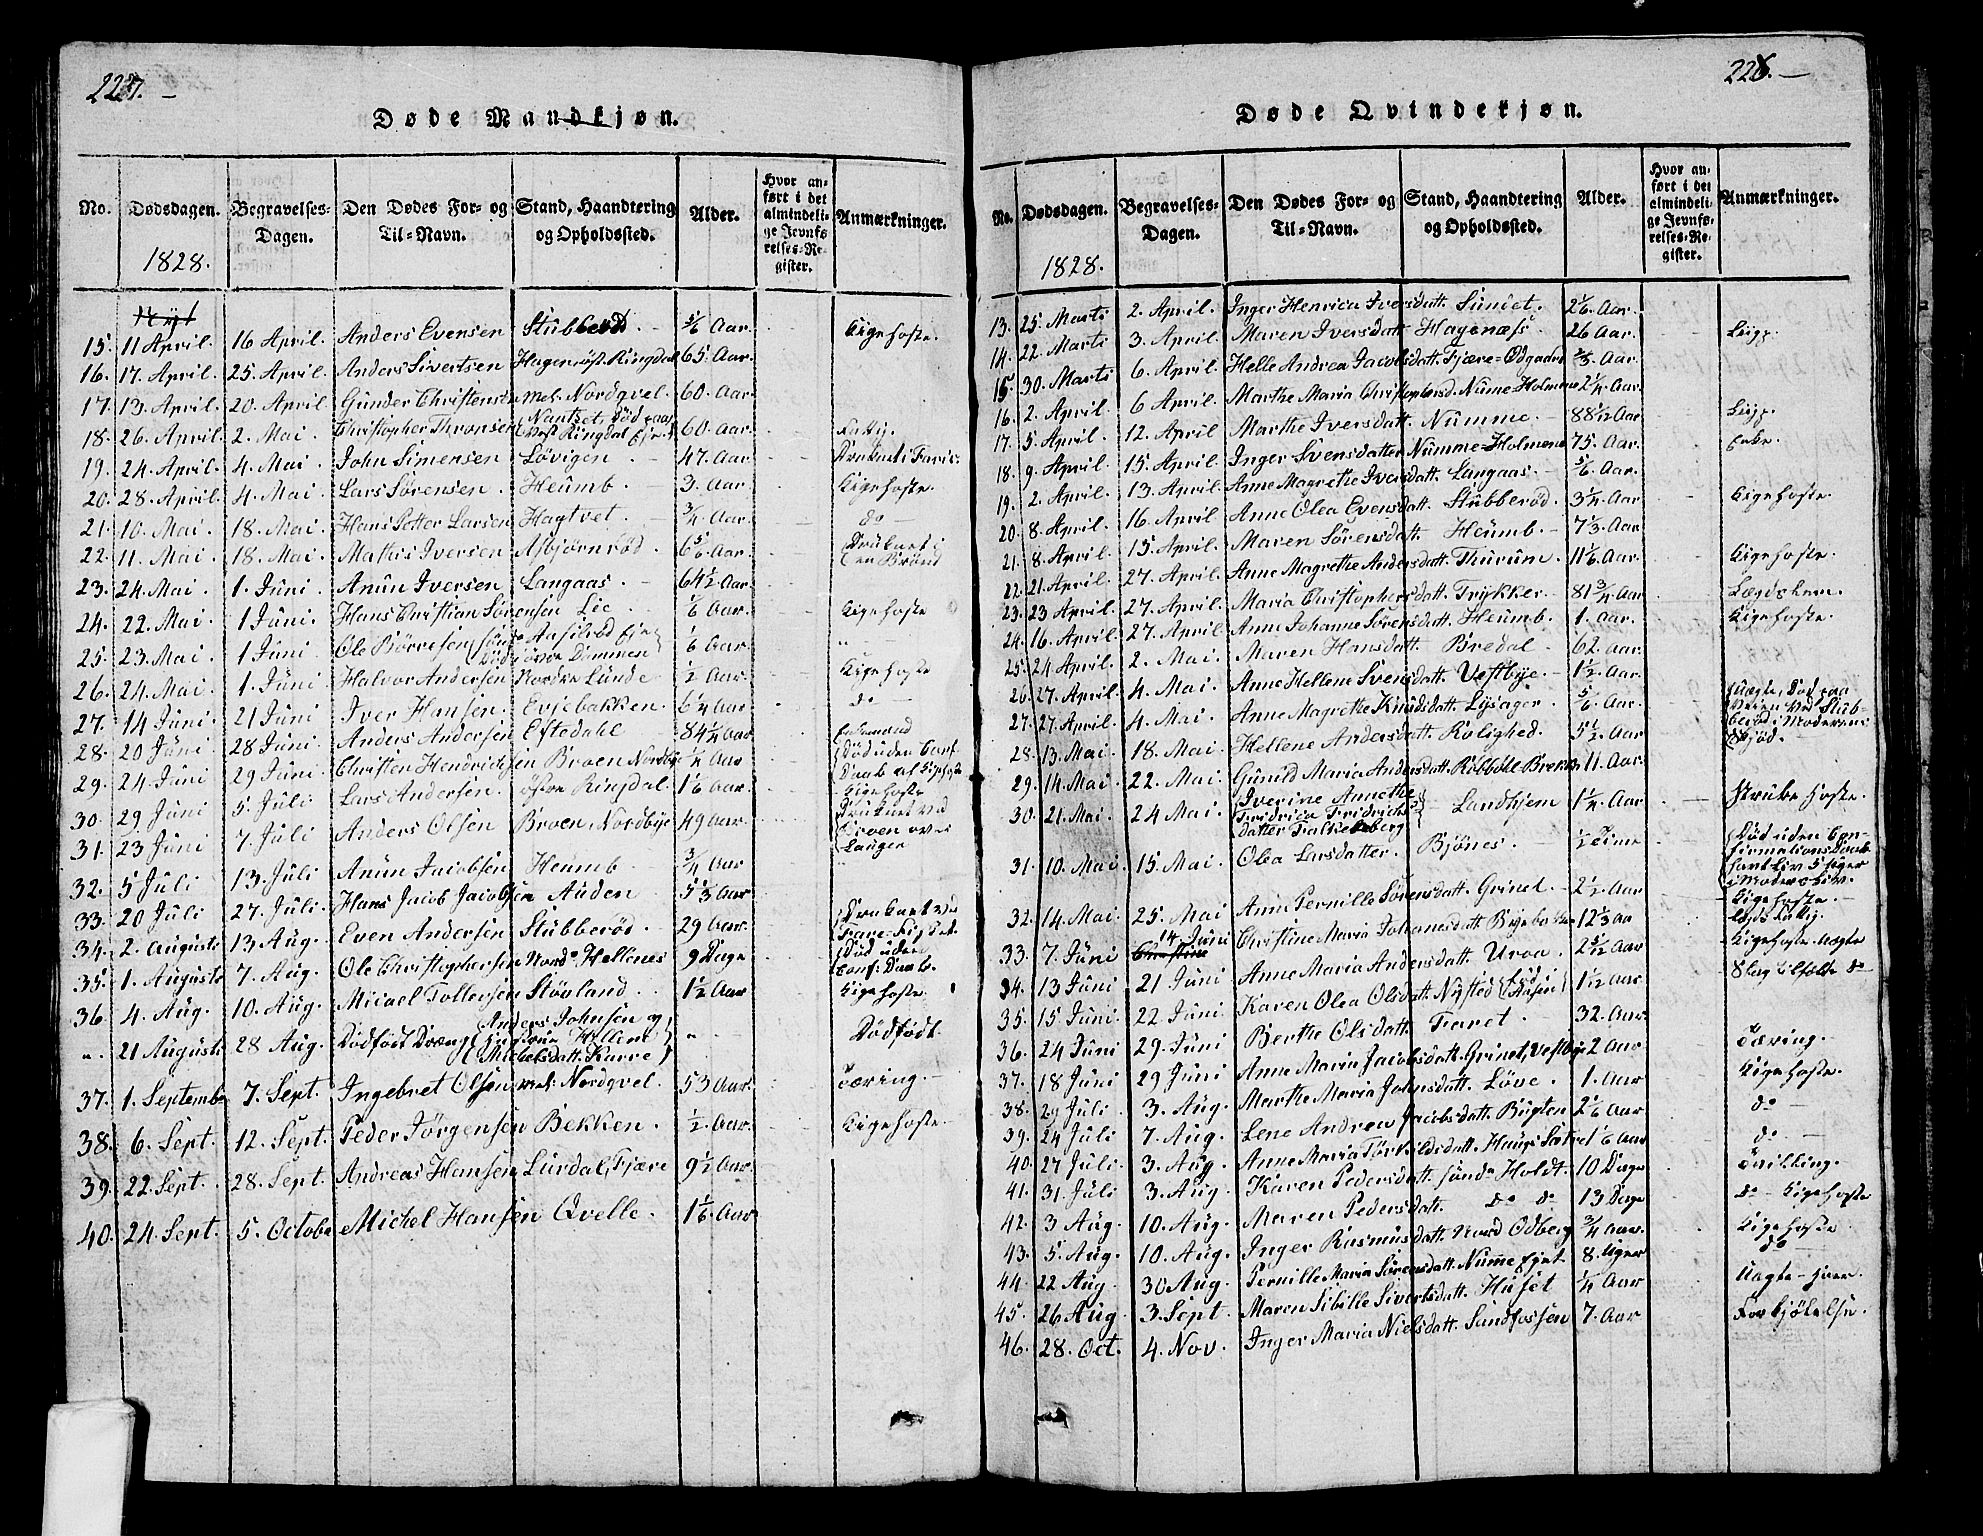 227. —
Døde Mandkjøn.
No. Dødsdagen. Begravelses-Dagen. Den Dødes For- og Til-Navn. Stand, Haandtering og Opholdssted. Alder. Hvor anført i det almindelige Jevnførelses-Register. Anmærkninger.
1828.
15. 11 April. 16 April. Anders Evensen Stubberød. 5/6 Aar. Kigehoste.
16. 17. April. 25. April. Anders Sivertsen Hagenæst. Ringdal 65. Aar.
17. 13. April. 20. April Gunder Christensen mel. Nordqvel. 60. Aar.
18. 26. April. 2. Mai. Christopher Thronsen Nantset, Død paa Vest Ringdal Eje 60. Aar.
19. 24. April. 4. Mai. John Simensen Løvigen. 47. Aar Druknet i Farris.
20. 28. April. 4. Mai. Lars Sørensen. Heumb. 3. Aar Kigehoste.
21. 10. Mai. 18. Mai. Hans Petter Larsen Hagtvet. 3/4 Aar. do
22. 11. Mai. 18. Mai. Mathis Iversen Asbjørnrød. 6 5/6 Aar. Druknet i en Brønd
23. 24. Mai. 1. Juni. Anun Iversen Langaas. 64 1/2 Aar.
24. 22. Mai. 1 Juni. Hans Christian Sørensen Lie. 1/6 Aar. Kigehoste
25. 23. Mai. 1 Juni. Ole Børresen Aasilrød Eje Død Dammen 1/6 Aar. "
26. 24. Mai. 1. Juni Halvor Andersen Nordre Lunde 1/2 Aar Kigehoste
27. 14 Juni. 21 Juni Iver Hansen. Evjebakken. 6 1/4 Aar do
28. 20 Juni 28 Juni. Anders Andersen Eftedahl 84 1/4 Aar
29. 24 Juni 29 Juni. Christen Hendrichsen Broen Nordbye 1/4 Aar Død uden Conf. Daab af Kighoste
30. 29 Juni 5. Juli Lars Andersen. østre Ringdal. 1 1/6 Aar. Kigehoste
31. 23 Juni 7. Juli Anders Olsen Broen, Nordbye 49 Aar. Druknet ved Broen over Laugen
32. 5 Juli 13. Juli Anun Jacobsen Heumb 3/4 Aar "
33. 20 Juli 27. Juli. Hans Jacob Jacobsen Auden 5 1/3 Aar
34. 2. Augusts 13 Aug. Even Andersen Stubberød. 29 Aar. Druknet ved
35. 1. Augusts 7. Aug. Ole Christophersen Nord. Hellenes 9 Dage Død uden Conf: Daab.
36. 4. Aug. 10. Aug. Micael Tollersen Støvland 1 1/2 Aar Kigehoste.
". 21 Augusts 28 Aug. Dødfødt Dreng Anders Johnsen og Hellene Michelsdatt. Karre " Dødfødt.
37. 1. Septembr 7. Sept. Ingebret Olsen mel: Nordqvel. 53 Aar. Tæring.
38. 6. Sept. 12. Sept. Peder Jørgensen Bekken. 1/2. Aar. Kigehoste.
39. 22. Sept. 28. Sept. Andreas Hansen Lurdal, Fjære 9 1/2 Aar
40. 24. Sept. 5. Octobr Michel Hansen Qvelle. 1 1/6. Aar
228. —
Døde Qvindekjøn.
No. Dødsdagen. Begravelses-Dagen. Den Dødes For- og Til-Navn. Stand, Haandtering og Opholdssted. Alder. Hvor anført i det almindelige Jevnførelses-Register. Anmærkninger.
1828.
13. 25. Marts 2. April. Inger Henrica Iversdatt. Sundet. 2 1/6. Aar.
14. 22. Marts 3. April. Maren Iversdatt. Hagenæs. 26 Aar.
15. 30. Marts 6. April. Helle Andrea Jacobsdatt. Fjære-Odgaarden 2/3. Aar.
16. 2. April. 6 April. Marthe Maria Christophersd. Numme Holmene 2 1/4 Aar.
17. 5 April. 12. April Marthe Iversdatt. Numme. 88 1/12 Aar
18. 9. April. 15. April. Inger Svensdatter Numme-Holmene 75. Aar.
19. 2. April. 13. April. Anne Magrethe Iversdatt. Langaas. 5/6. Aar.
20. 8. April. 16. April. Anne Olea Evensdatt. Stubberød. 3 1/4 Aar Kigehoste.
21. 8. April. 15. April. Maren Sørensdatt. Heumb. 7 1/3. Aar
22. 21 April. 27. April. Anne Magrethe Andersdatt. Thurum. 11 1/6 Aar. Kigehoste.
23. 23 April. 27. April. Maria Christophersdatt. Trykker. 81 3/4 Aar
24. 16. April. 27. April. Anne Johanne Sørensdatt. Heumb. 1. Aar. Kigehoste.
25. 24 April. 2. Mai. Maren Hansdatt. Bredal. 62. Aar.
26. 27. April. 4. Mai. Anne Hellene Svensdatt. Vestbye. 1 1/2. Aar.
27. 27. April. 4. Mai. Anne Magrethe Knudsdatt. Lysager. 5/6. Aar. Uægte, Død paa Veien ved Stubberød i Moderens Skjød.
28. 13. Mai. 18. Mai. Hellene Andersdatt. Rolighed. 5 1/2. Aar
29. 14. Mai. 22. Mai. Gunild Maria Andersdatt. Ribbøle Brekke 11. Aar.
30. 21. Mai. 24 Mai. Iverine Annethe Fridrica Fridrichsdatter Falkenberg Landhjem 1 1/4. Aar Strubehoste.
31. 10. Mai 15. Mai. Olea Larsdatter. Bjønes. 1/2 Time Død uden Confirmations Daab
32. 14. Mai. 25. Mai Anne Pernille Sørensdatt. Grinet. 2 1/2. Aar Kigehoste.
33. 7. Juni 14. Juni Christine Maria Johansdatt. 12 1/3 Aar
34. 13 Juni 21 Juni Anne Maria Andersdatt. Uroa. 2 5/12 Aar
35. 15 Juni. 22 Juni Karen Olea Olsdatt. Nysted 1 1/2 Aar.
36. 24 Juni 29. Juni Berthe Olsdatt. 32. Aar. Tæring.
37. 18 Juni 29 Juni Anne Maria Jacobsdatt. Grinet, Vestbye 2 Aar Kigehoste.
38. 29 Juli 3. Aug. Marthe Maria Johnsdatt. Løve. 1. Aar do
39. 24 Juli 7. Aug. Lene Andrea Jacobsdatt. Bugten 2 1/6 Aar do
40. 27 Juli. 3. Aug Anne Maria Torvildsdatt. Haugs Satre 1 1/6 Aar
41. 31. Juli 3. Aug. Karen Pedersdatt. søndr Holdt. 10 Dage Tvilling.
42. 3 Aug. 10. Aug. Maren Pedersdatt. do do 13 Dage do Kigehoste
43. 5. Aug. 10. Aug. Inger Rasmusdatt. Nord Odberg 3/4 Aar. Kigehoste. do
44. 22 Aug. 30 Aug. Pernille Maria Sørensdatt. Numme Ejet 8. Uger
45. 26 Aug. 3. Sept. Maren Sibille Sivertsdatt. Huset 1/4 Aar
46. 28. Oct. 4. Nov. Inger Maria Nielsdatt. Sundfossen 7. Aar Forkjølelse.